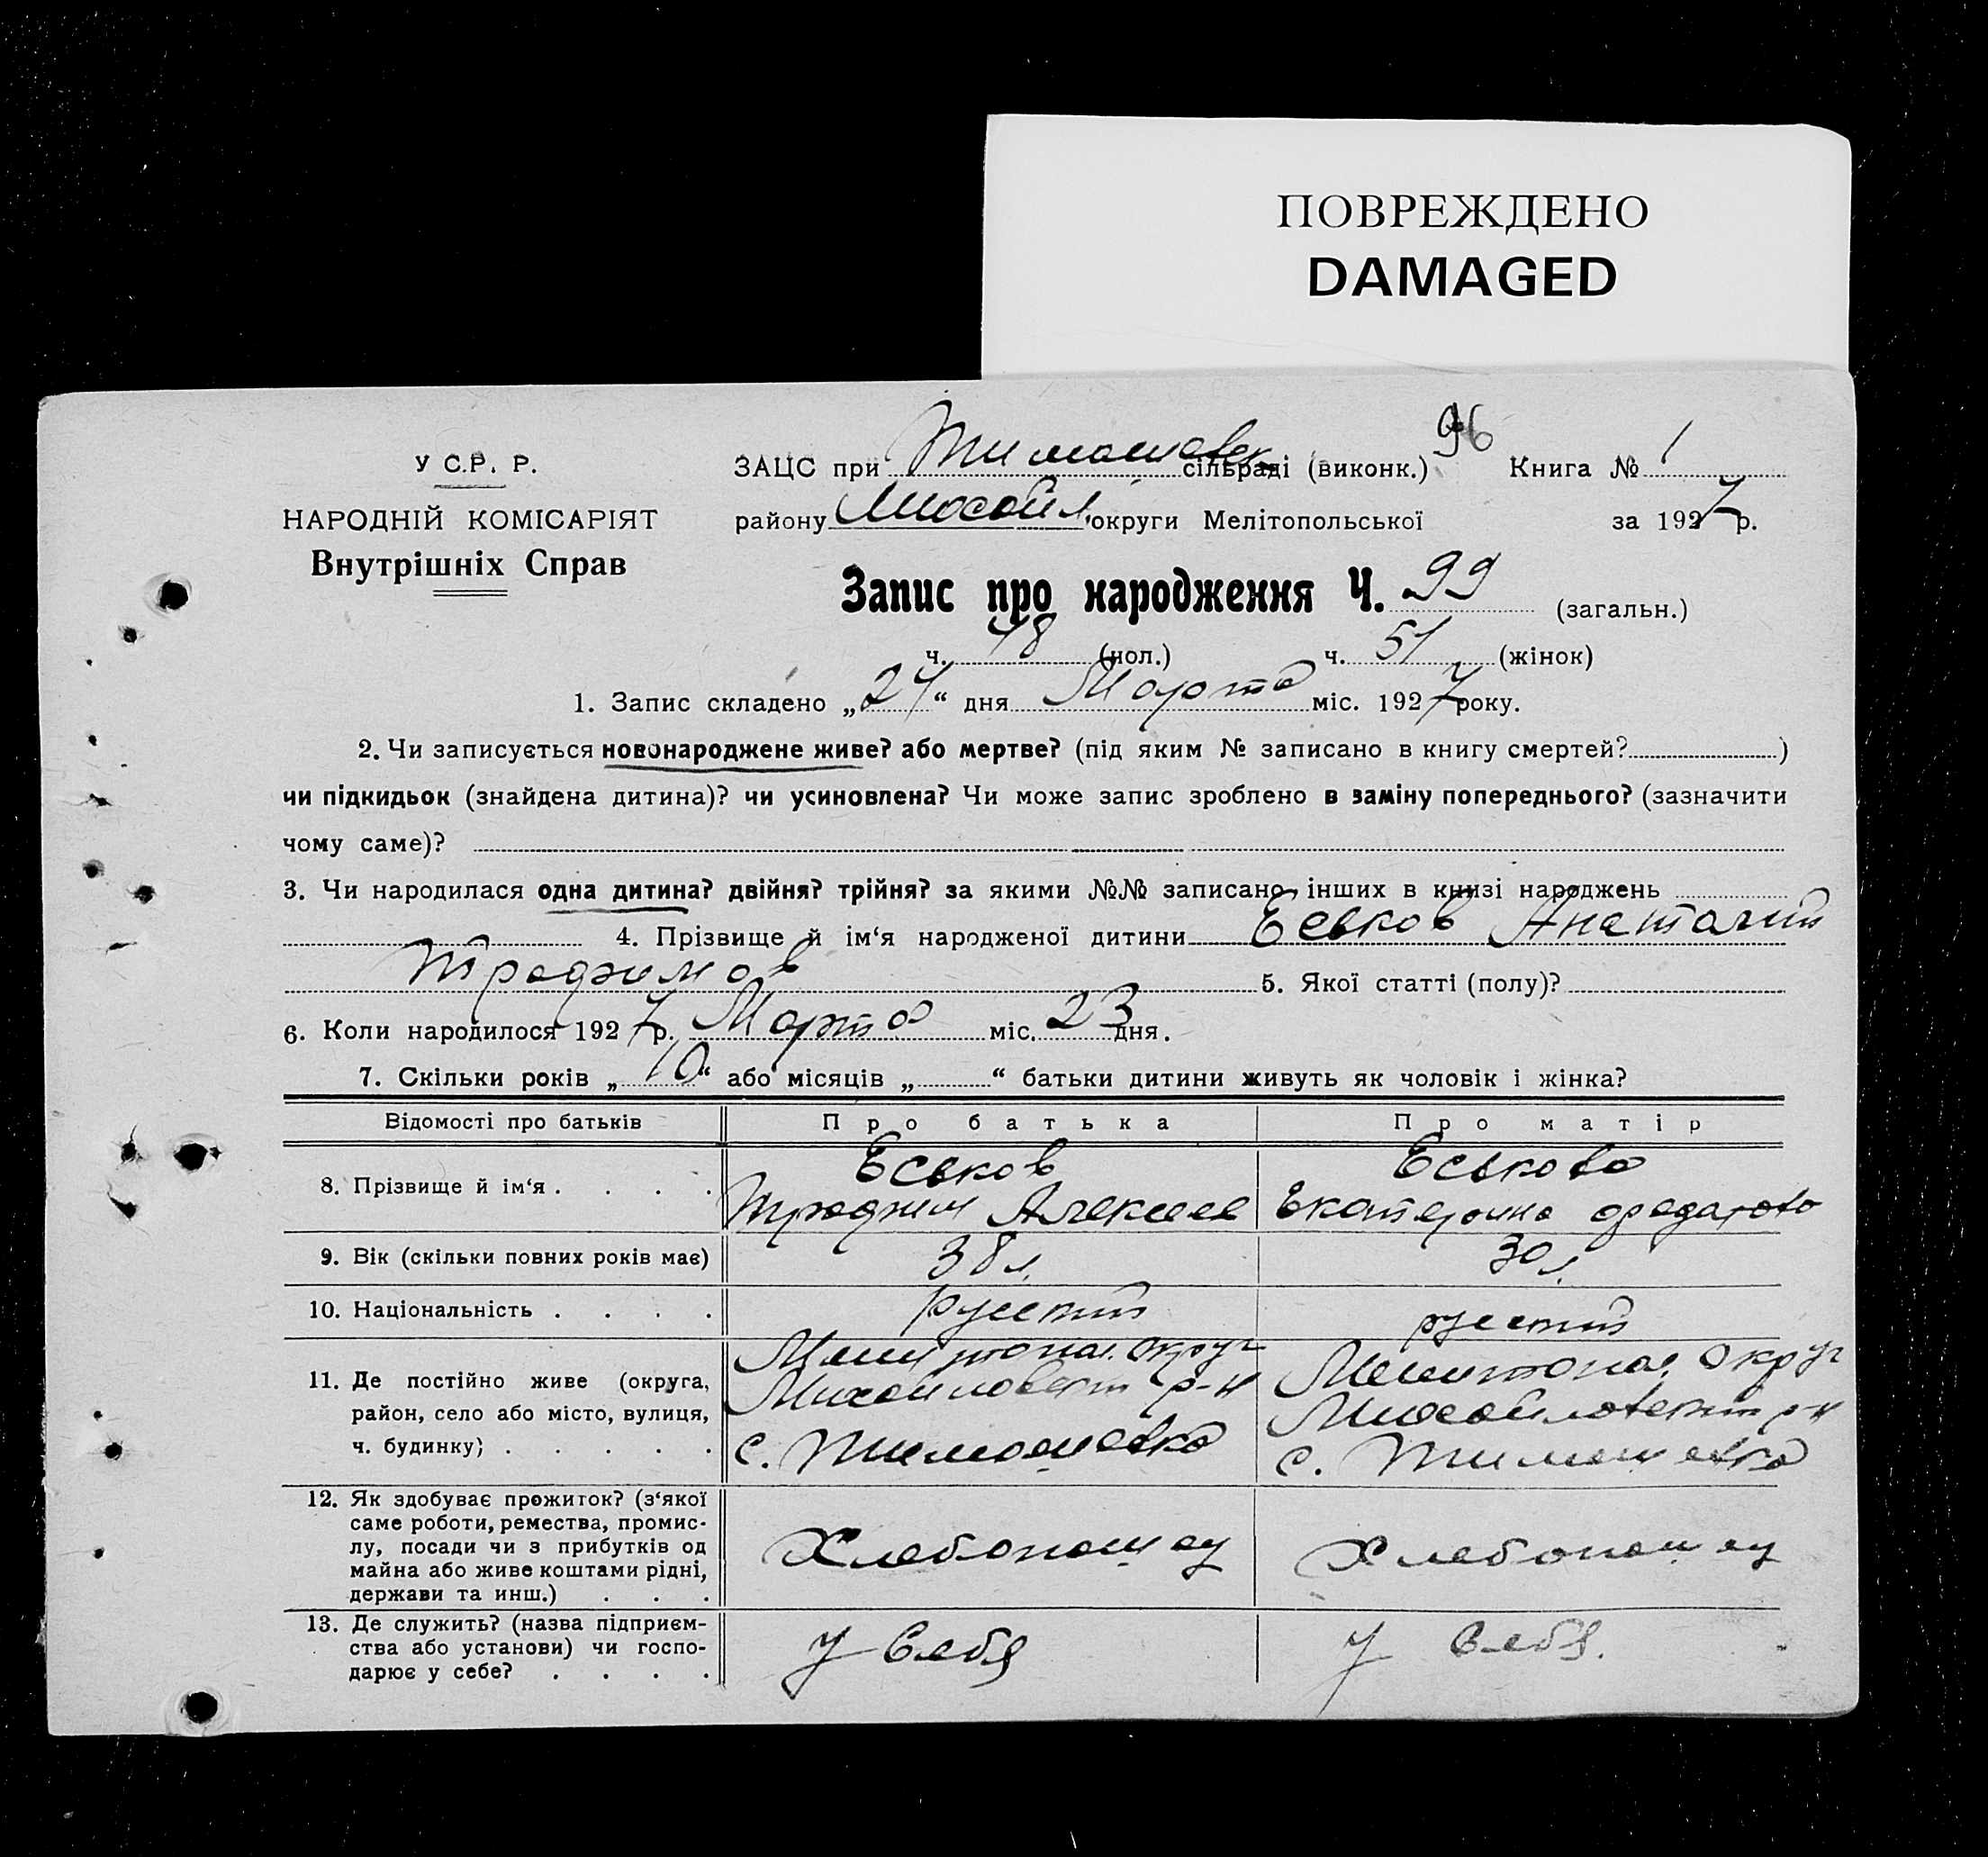 ПОВРЕЖДЕНО
DAMAGED
96
У С.Р. Р.
НАРОДНІЙ КОМІСАРІЯТ
Внутрішніх Справ
ЗАЦС при Тимошевск сільраді (виконк.) Книга № 1
району Михайл. округи Мелітопольської за 1927 р.
Запис про народження Ч. 99 (загальн.)
ч. 48 (чол.) ч. 51 (жінок)
1. Запис складено „24“ дня Марта міс. 1927 року.
2. Чи записується новонароджене живе? або мертве? (під яким № записано в книгу смертей? )
чи підкидьок (знайдена дитина)? чи усиновлена? Чи може запис зроблено в заміну попереднього? (зазначити
чому саме)?
3. Чи народилася одна дитина? двійня? трійня? за якими №№ записано інших в книзі народжень
4. Прізвище й ім‘я народженої дитини Еськов Анатолий
Трофимов 5. Якої статті (полу)?
6. Коли народилося 1927 р. Марта міс. 23 дня.
7. Скільки років „10“ або місяців „ “ батьки дитини живуть як чоловік і жінка?
Відомості про батьків Про батька Про матір
8. Прізвище й ім‘я . . . . Еськов Еськова
Трофим Алексеев Екатерина Федотова
9. Вік (скільки повних років має) 38 л. 30 л.
10. Національність . . . . русский русский
11. Де постійно живе (округа, район, село або місто, вулиця, ч. будинку) . . . . .
Мелитопол. округ Мелитопол. округ
Михайловский р-н Михайловский р-н
с. Тимошевка с. Тимошевка
12. Як здобуває прожиток? (з‘якої
саме роботи, ремества, промис-
лу, посади чи з прибутків од
майна або живе коштами рідні,
держави та инш.) . . .
Хлебопашец Хлебопашец
13. Де служить? (назва підприєм-
ства або установи) чи госпо-
дарює у себе? . . . .
У себя У себя.